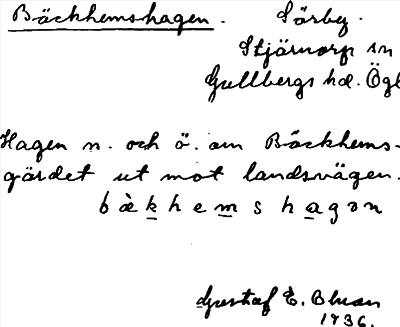 Bäckhemshagen. Sörby.
Stjärnorp sn
Gullbergs hd. Ögl
Hagen n. och ö. om Bäckhems-
gärdet ut mot landsvägen.
bàkhemshagon
Gustaf E. Bluan
1936.